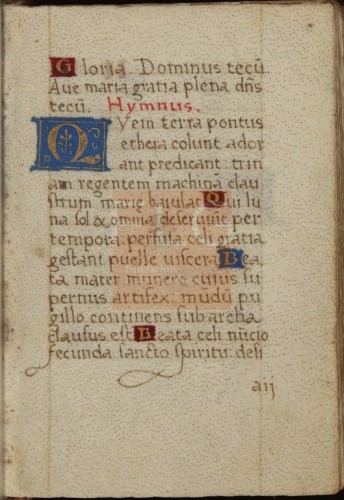 Gloria. Dominus tecū.
Aue maria gratia plena dn̄s
tecū. Hymnus.
Quem terra pontus
ethera colunt ador
ant predicant: trin
am regentem machinā clau
strum marie baiulat Qui lu
na sol & omnia deseruiūt per
tempora: perfusa celi gratia
gestant puelle viscera Bea
ta mater munere cuius su
pernus artifex: mūdū pu
gillo continens sub archa
clausus est Beata celi nūcio
fecunda sancto spiritu: desi
aij